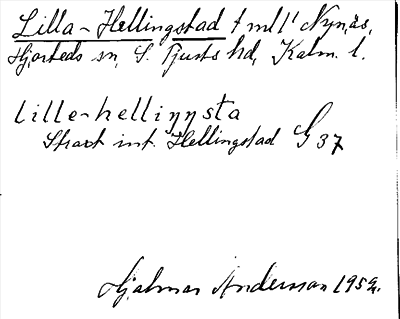 Lilla-Hellingstad t ml l' Nynäs,
Hjorteds sn, S. Tjusts hd, Kalm. l.
lille-helliŋŋsta
Strax int. Hellingstad G 37
Hjalmar Andersson 1952.